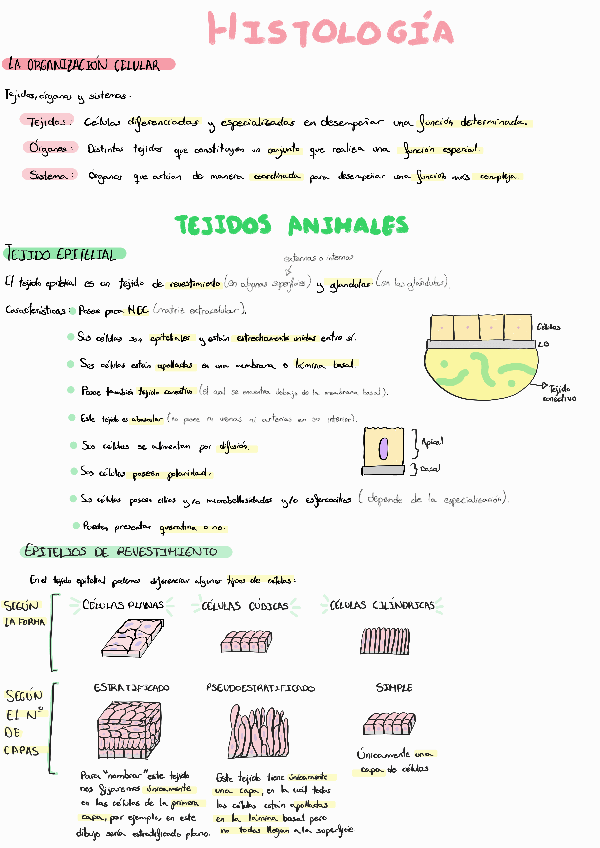 HISTOLOGÍA
LA ORGANIZACIÓN CELULAR
Tejidos, órganos y sistemas.
Tejidos: Células diferenciadas y especializadas en desempeñar una función determinada.
Órganos: Distintos tejidos que constituyen un conjunto que realiza una función especial.
Sistema: Órganos que actúan de manera coordinada para desempeñar una función más compleja
TEJIDOS ANIMALES
TEJIDO EPITELIAL
externas o internas
El tejido epitelial es un tejido de revestimiento (en algunas superficies) y glandular (en las glándulas).
Características: Posee poca MEC (matriz extracelular).
Sus células son epiteliales y están estrechamente unidas entre sí.
Sus células están apolladas en una membrana o lámina basal.
Posee también tejido conectivo (el cual se encuentra debajo de la membrana basal).
Este tejido es abascular (no posee ni venas ni arterias en su interior).
Sus células se alimentan por difusión.
Sus células poseen polaridad.
Sus células poseen cilios y/o microbellosidades y/o (depende de la especialización).
Pueden presentar queratina o no.
Células
LB
Tejido
conectivo
Apical
Basal
EPITELIOS DE REVESTIMIENTO
En el tejido epitelial podemos diferenciar algunos tipos de células:
SEGÚN
LA FORMA
CÉLULAS PLANAS
CÉLULAS CÚBICAS
CÉLULAS CILÍNDRICAS
SEGÚN
EL Nº
DE
CAPAS
ESTRATIFICADO
PSEUDOESTRATIFICADO
SIMPLE
Para "nombrar" este tejido
nos fijaremos únicamente
en las células de la primera
capa, por ejemplo, en este
dibujo sería estratificado plano.
Este tejido tiene únicamente
una capa, en la cual todas
las células están apolladas
en la lámina basal pero
no todas llegan a la superficie
Únicamente una
capa de células